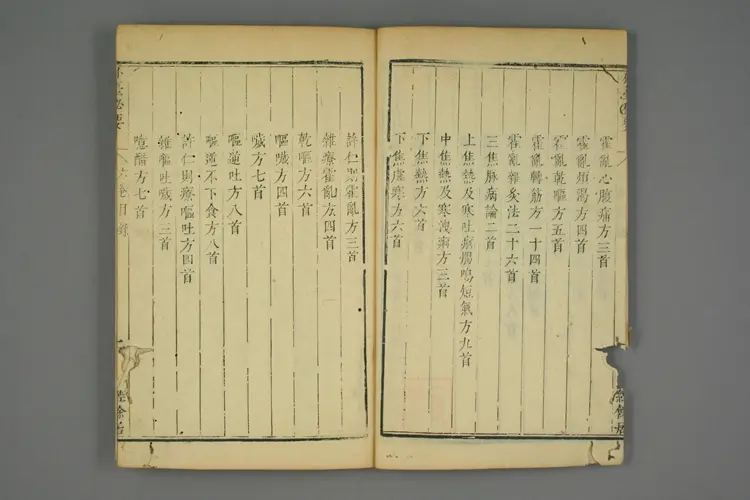 霍亂心腹痛方三首
霍亂煩渴方四首
霍亂乾嘔方五首
霍亂轉筋方一十四首
霍亂雜灸法二十六首
三焦脉病論二首
上焦熱及寒吐痢腸鳴短氣方九首
中焦熱及寒洩痢方三首
下焦熱方六首
下焦虛寒方六首
許仁則霍亂方三首
雜療霍亂方四首
乾嘔方六首
嘔噦方四首
噦方七首
嘔逆吐方八首
嘔逆不下食方八首
許仁則療嘔吐方四首
雜嘔吐噦方三首
噫醋方七首
目錄
經餘居